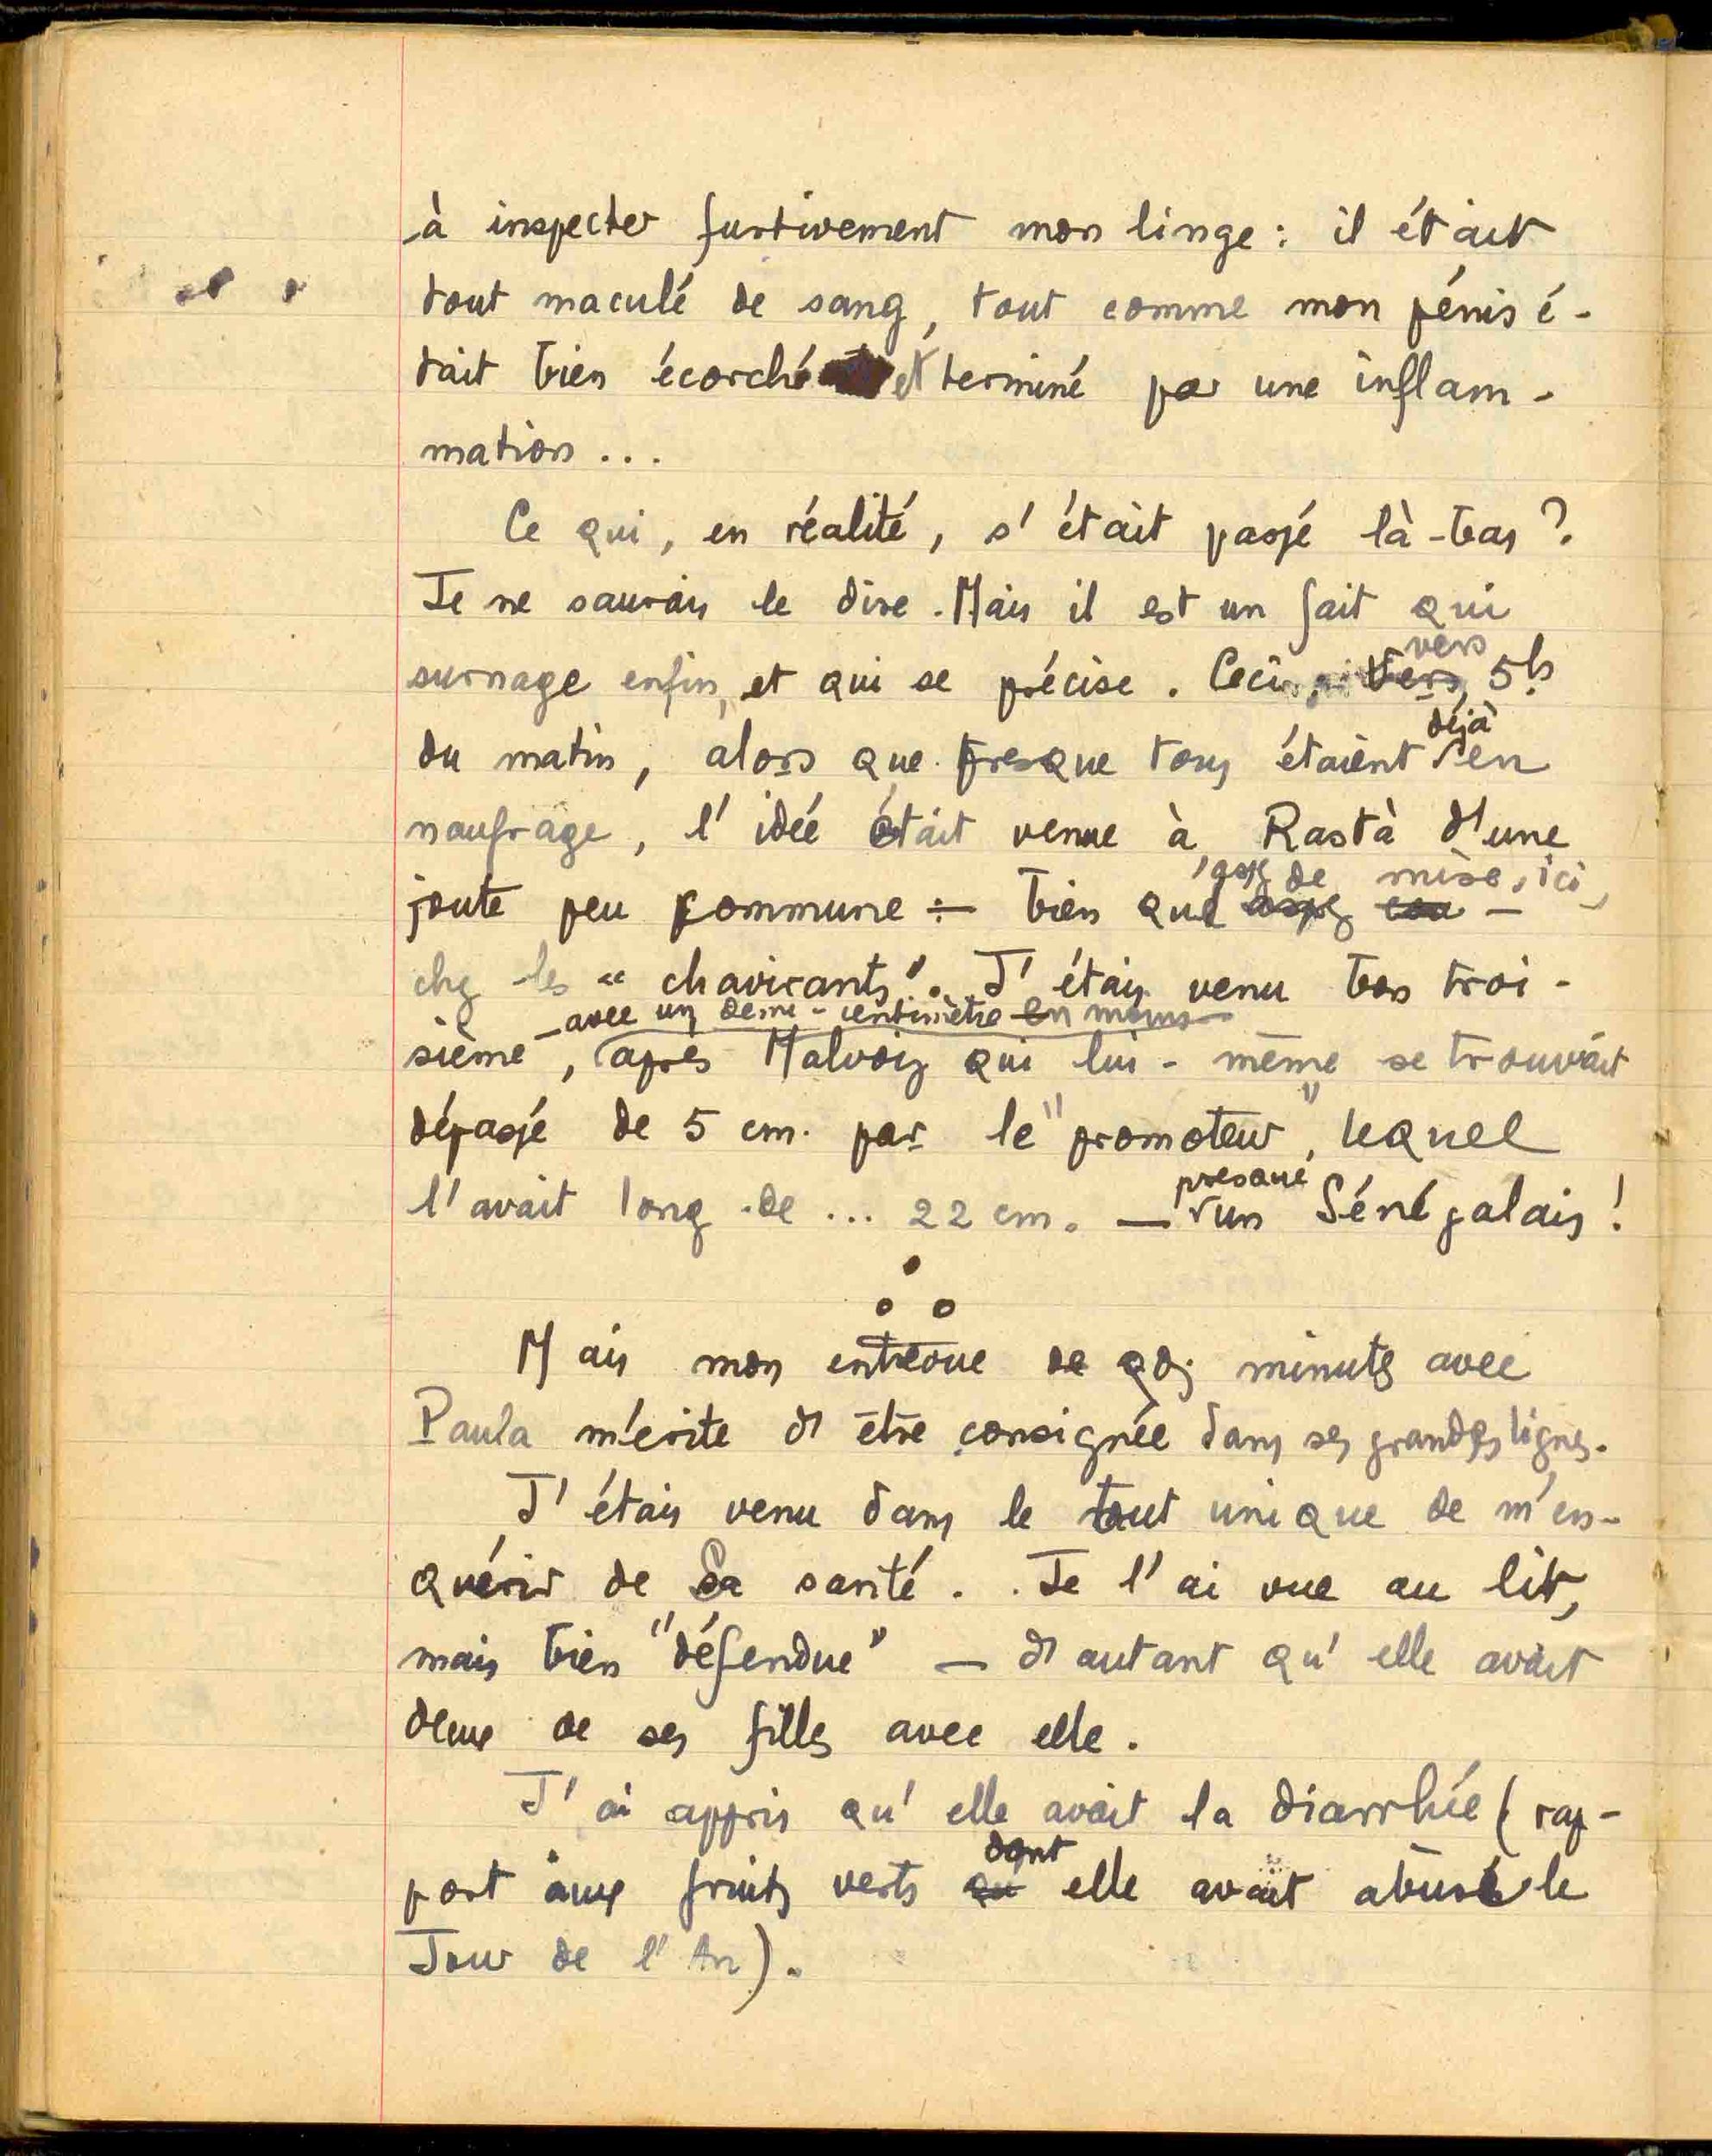 à inspecter furtivement mon linge : il était
tout maculé de sang, tout comme mon pénis é-
tait bien écorché et terminé par une inflam-
mation...
Ce qui, en réalité, s'était passé là-bas ?
Je ne saurais le dire. Mais il est un fait qui
surnage enfin, et qui se précise. Ceci, vers 5h
du matin, alors que presque tous étaient déjà en
naufrage, l'idée était venue à Rastà d'une
joute peu commune – bien que assez de mise, ici,
chez les « chavirants ». J'étais venu bon troi-
sième – avec un demi-centimètre en moins –
, après Malvoiz qui lui-même se trouvait
dépassé de 5 cm. par le "promoteur", lequel
l'avait long de ... 22 cm. — presque un Sénégalais !
Mais mon entrevue de qqs minutes avec
Paula mérite d'être consignée dans ses grandes lignes.
J'étais venu dans le but unique de m'en-
quérir de Sa santé. Je l'ai vue au lit,
mais bien "défendue" — d'autant qu'elle avait
deux de ses filles avec elle.
J'ai appris qu'elle avait la diarrhée (rap-
port aux fruits verts dont elle avait abusé le
Jour de l'An).